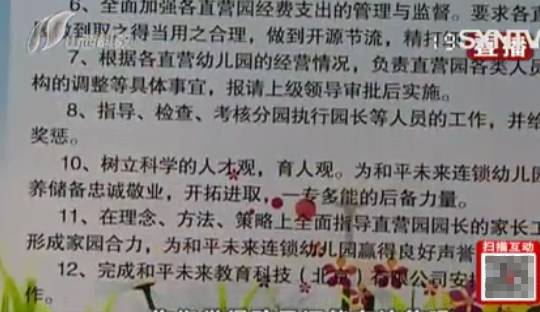 6、全面加强各直营园经费支出的管理与监督。要求各直
做到取之得当用之合理，做到开源节流，精打
7、根据各直营幼儿园的经营情况，负责直营园各类人员
构的调整等具体事宜，报请上级领导审批后实施。
8、指导、检查、考核分园执行园长等人员的工作，并给
奖惩。
10、树立科学的人才观，育人观。为和平未来连锁幼儿园
养储备忠诚敬业，开拓进取，一专多能的后备力量。
11、在理念、方法、策略上全面指导直营园园长的家长工
形成家园合力，为和平未来连锁幼儿园赢得良好声誉
12、完成和平未来教育科技（北京）有限公司安排
作。
直播
扫描互动